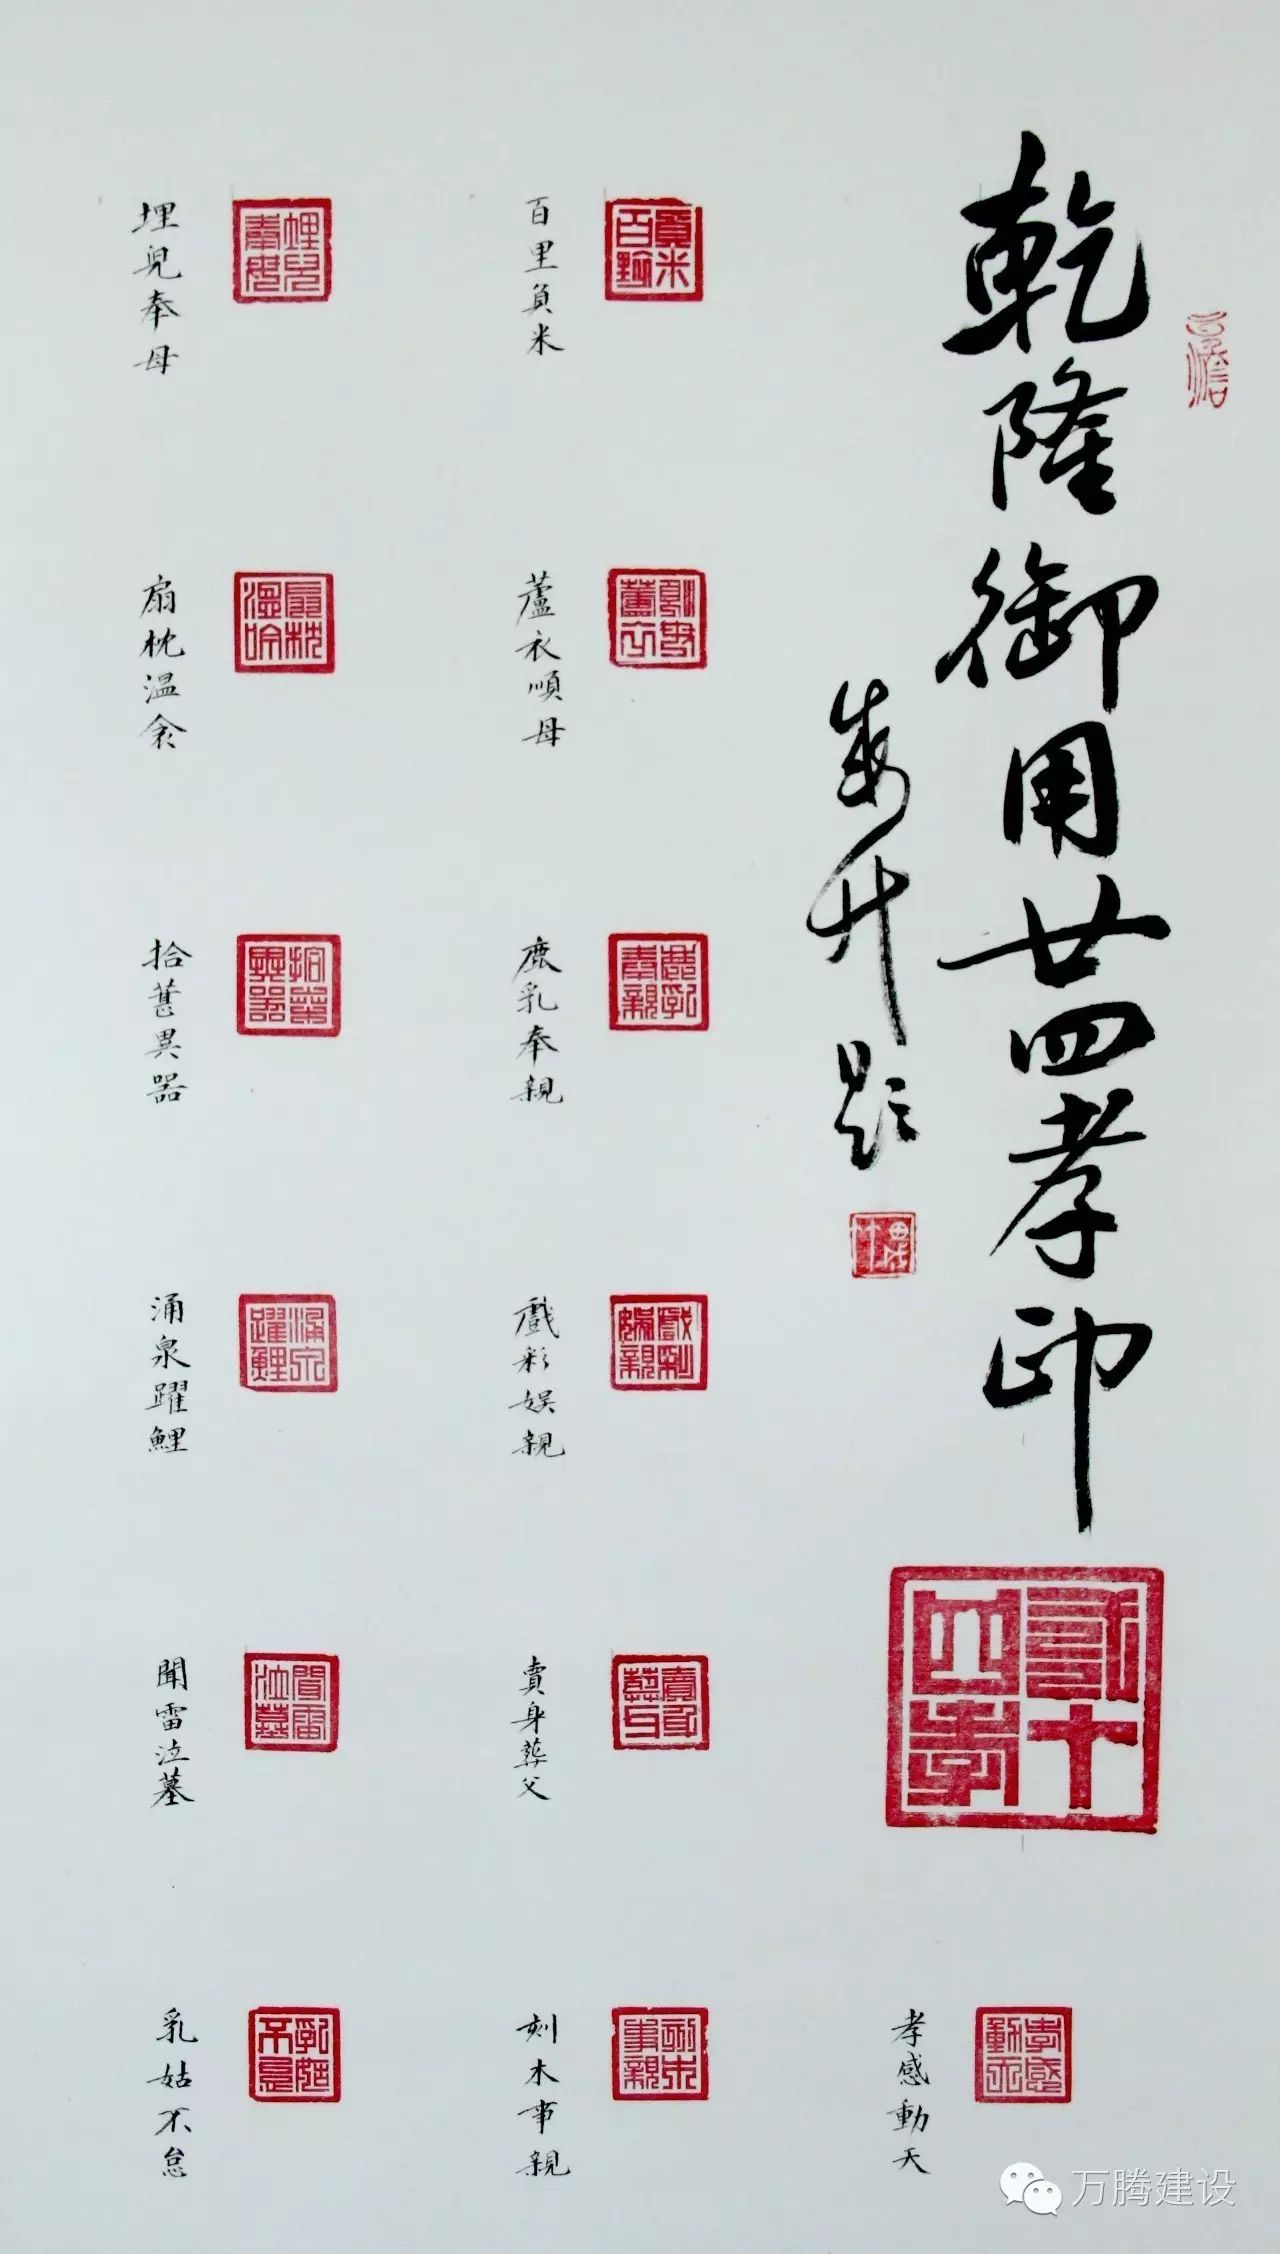 乾隆御用廿四孝印
二十四孝
孝感動天
百里負米
蘆衣順母
鹿乳奉親
戲彩娛親
賣身葬父
刻木事親
埋兒奉母
扇枕溫衾
拾葚異器
涌泉躍鯉
聞雷泣墓
乳姑不怠
万腾建设